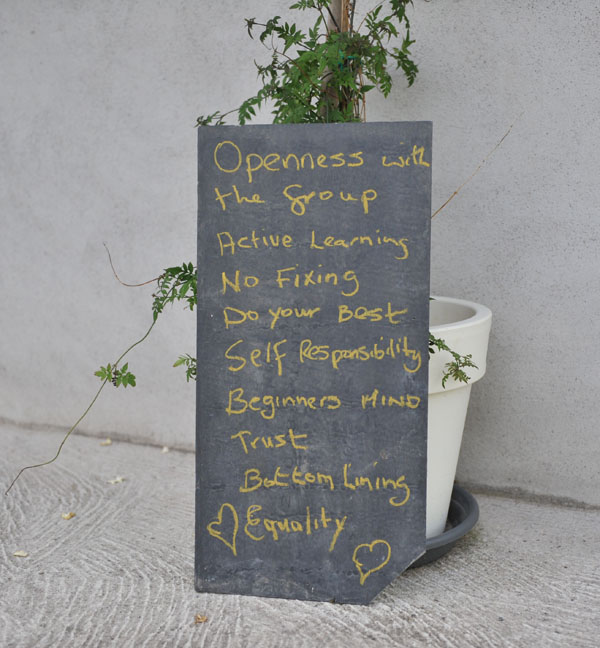 Openness with
the Group
Active Learning
No Fixing
Do your Best
Self Responsibility
Beginners MIND
Trust
Bottom Lining
Equality